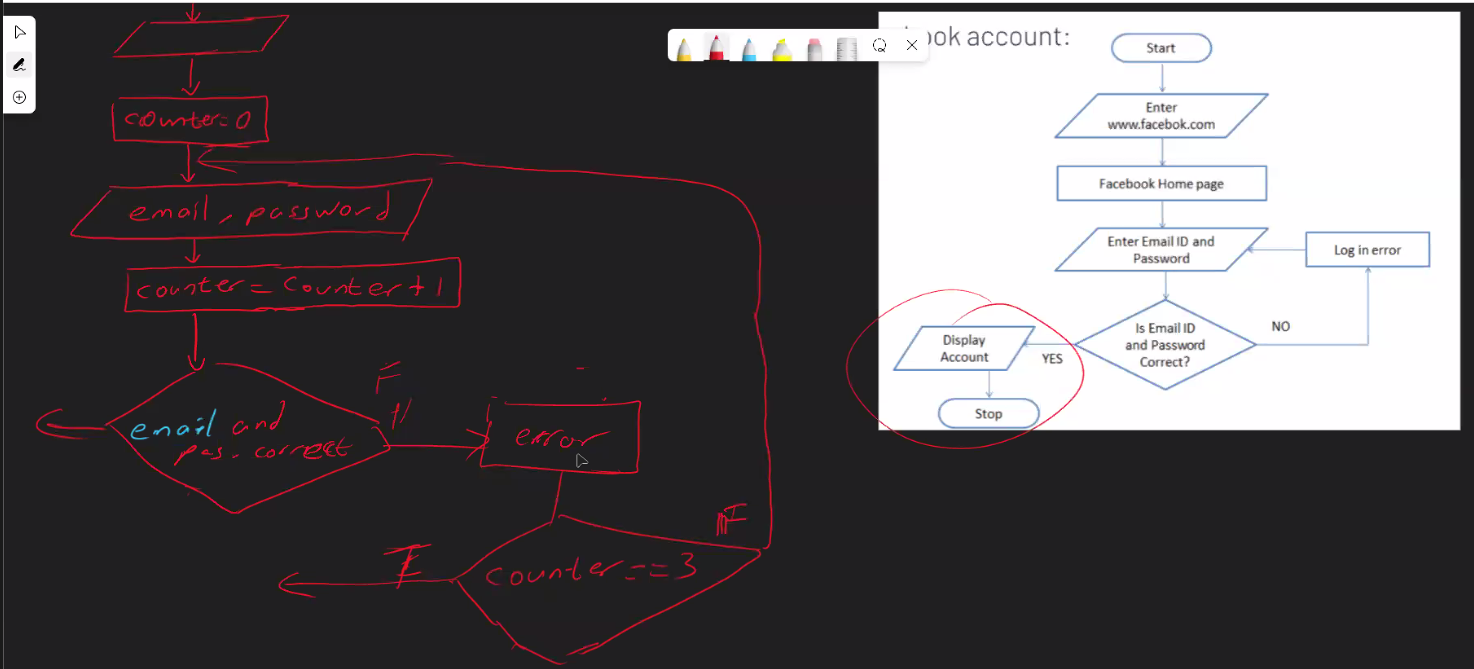 counter=0
email, password
counter = counter + 1
email and
pas. correct
F
error
counter == 3
T
F
ook account:
Start
Enter
www.facebok.com
Facebook Home page
Enter Email ID and
Password
Log in error
Is Email ID
and Password
Correct?
NO
YES
Display
Account
Stop